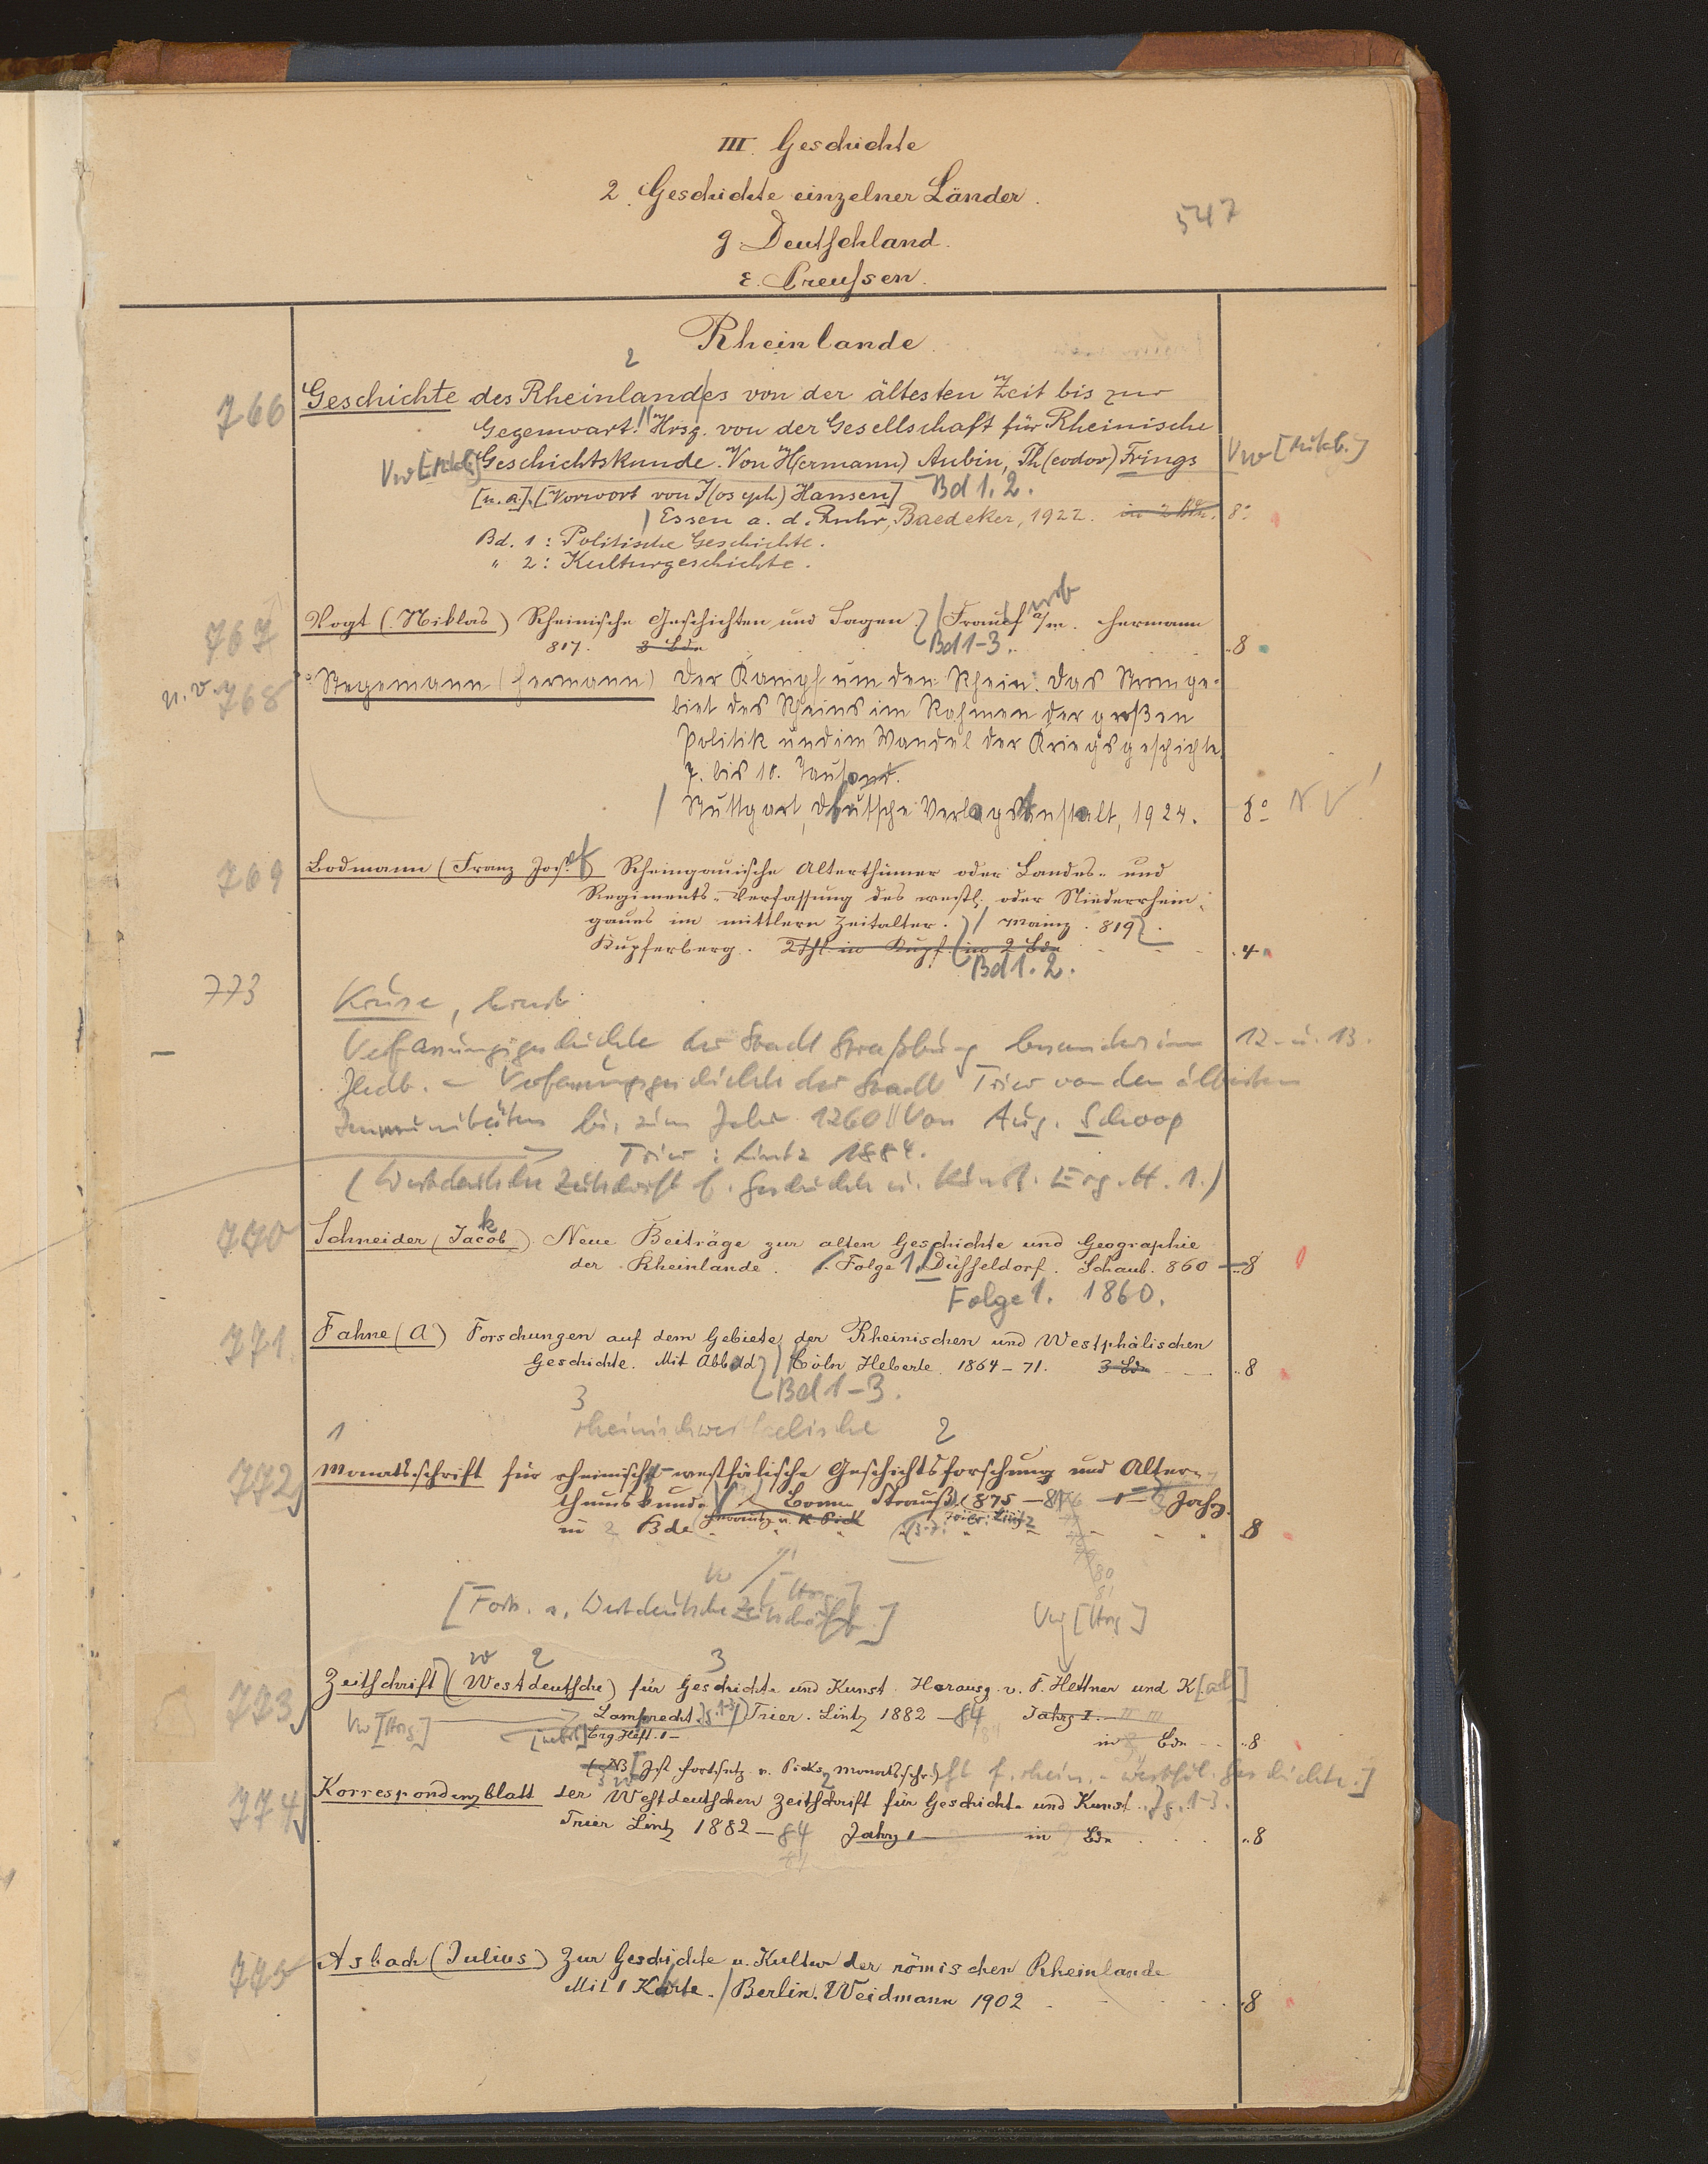 III. Geschichte
2. Geschichte einzelner Länder.
547
g. Deutschland.
ε. Preussen.
Rheinlande
2
766 Geschichte des Rheinlandes von der ältesten Zeit bis zur
Gegenwart. Hrsg. von der Gesellschaft für Rheinische
Geschichtskunde. Von H(ermann) Aubin, Th(eodor) Frings
[u. a.]. [Vorwort von J(oseph) Hansen] Bd 1. 2.
Essen a. d. Ruhr, Baedeker, 1922. in 2 Bdn. 8°
Bd. 1: Politische Geschichte.
" 2: Kulturgeschichte.
767 Vogt (Niklas) Rheinische Geschichten und Sagen. Frankf a/m. Hermann
817. 3 Bde Bd 1-3. 8
n. v. 768 Stegemann (Hermann) Der Kampf um den Rhein. Das Stromge-
biet des Rheins im Rahmen der großen
Politik und im Wandel der Kriegsgeschichte.
7. bis 10. Tausend.
Stuttgart, Deutsche Verlagsanstalt, 1924. 8° N V
769 Bodmann (Franz Jos.) Rheingauische Alterthümer oder Landes- und
Regiments-Verfassung des westl. oder Niederrhein-
gaues im mittlern Zeitalter. Mainz. 819.
Kupferberg. in 2 Bde 4
Bd 1. 2.
773 Kruse, Ernst
Verfassungsgeschichte der Stadt Straßburg besonders im 12. u. 13.
Jhdt. - Verfassungsgeschichte der Stadt Trier von den ältesten
Immunitäten bis zum Jahr 1260 || Von Aug. Schoop
Trier: Lintz 1884.
(Westdeutsche Zeitschrift f. Geschichte u. Kunst. Erg. H. 1.)
770 Schneider (Jacob) Neue Beiträge zur alten Geschichte und Geographie
der Rheinlande. Folge 1. Düsseldorf. Schaub. 860 — 8
Folge 1. 1860.
771 Fahne (A) Forschungen auf dem Gebiete der Rheinischen und Westphälischen
Geschichte. Mit Abbild Cöln Heberle. 1864-71. 3 Bde 8
Bd 1-3.
3
rheinischwestfaelische
1 2
772 Monatsschrift für rheinisch-westfälische Geschichtsforschung und Alter-
thumskunde Bonn Strauß 1875 — Jahrg.
in 2 Bde K. Pick Trier: Lintz 8
80
81
[Forts. s. Westdeutsche Zeitschrift.] Vw [Hrsg]
w 2 3
773 Zeitschrift (Westdeutsche) für Geschichte und Kunst. Herausg. v. F. Hettner und K[arl]
Vw [Hrsg.] Lamprecht. Jg. 1-3 Trier. Lintz 1882 — 84 Jahrg I. II III
[nebst] Erg Heft. 1 — in Bde 8
(NB [Ist Fortsetz. v. Picks Monatsschrift f. rhein.- westfäl. Geschichte.]
774 Korrespondenzblatt der Westdeutschen Zeitschrift für Geschichte und Kunst. Jg. 1-3.
Trier Lintz 1882 — 84 Jahrg 1 — in Bde 8
775 Asbach (Julius) Zur Geschichte u. Kultur der römischen Rheinlande
Mit 1 Karte. Berlin. Weidmann 1902 8